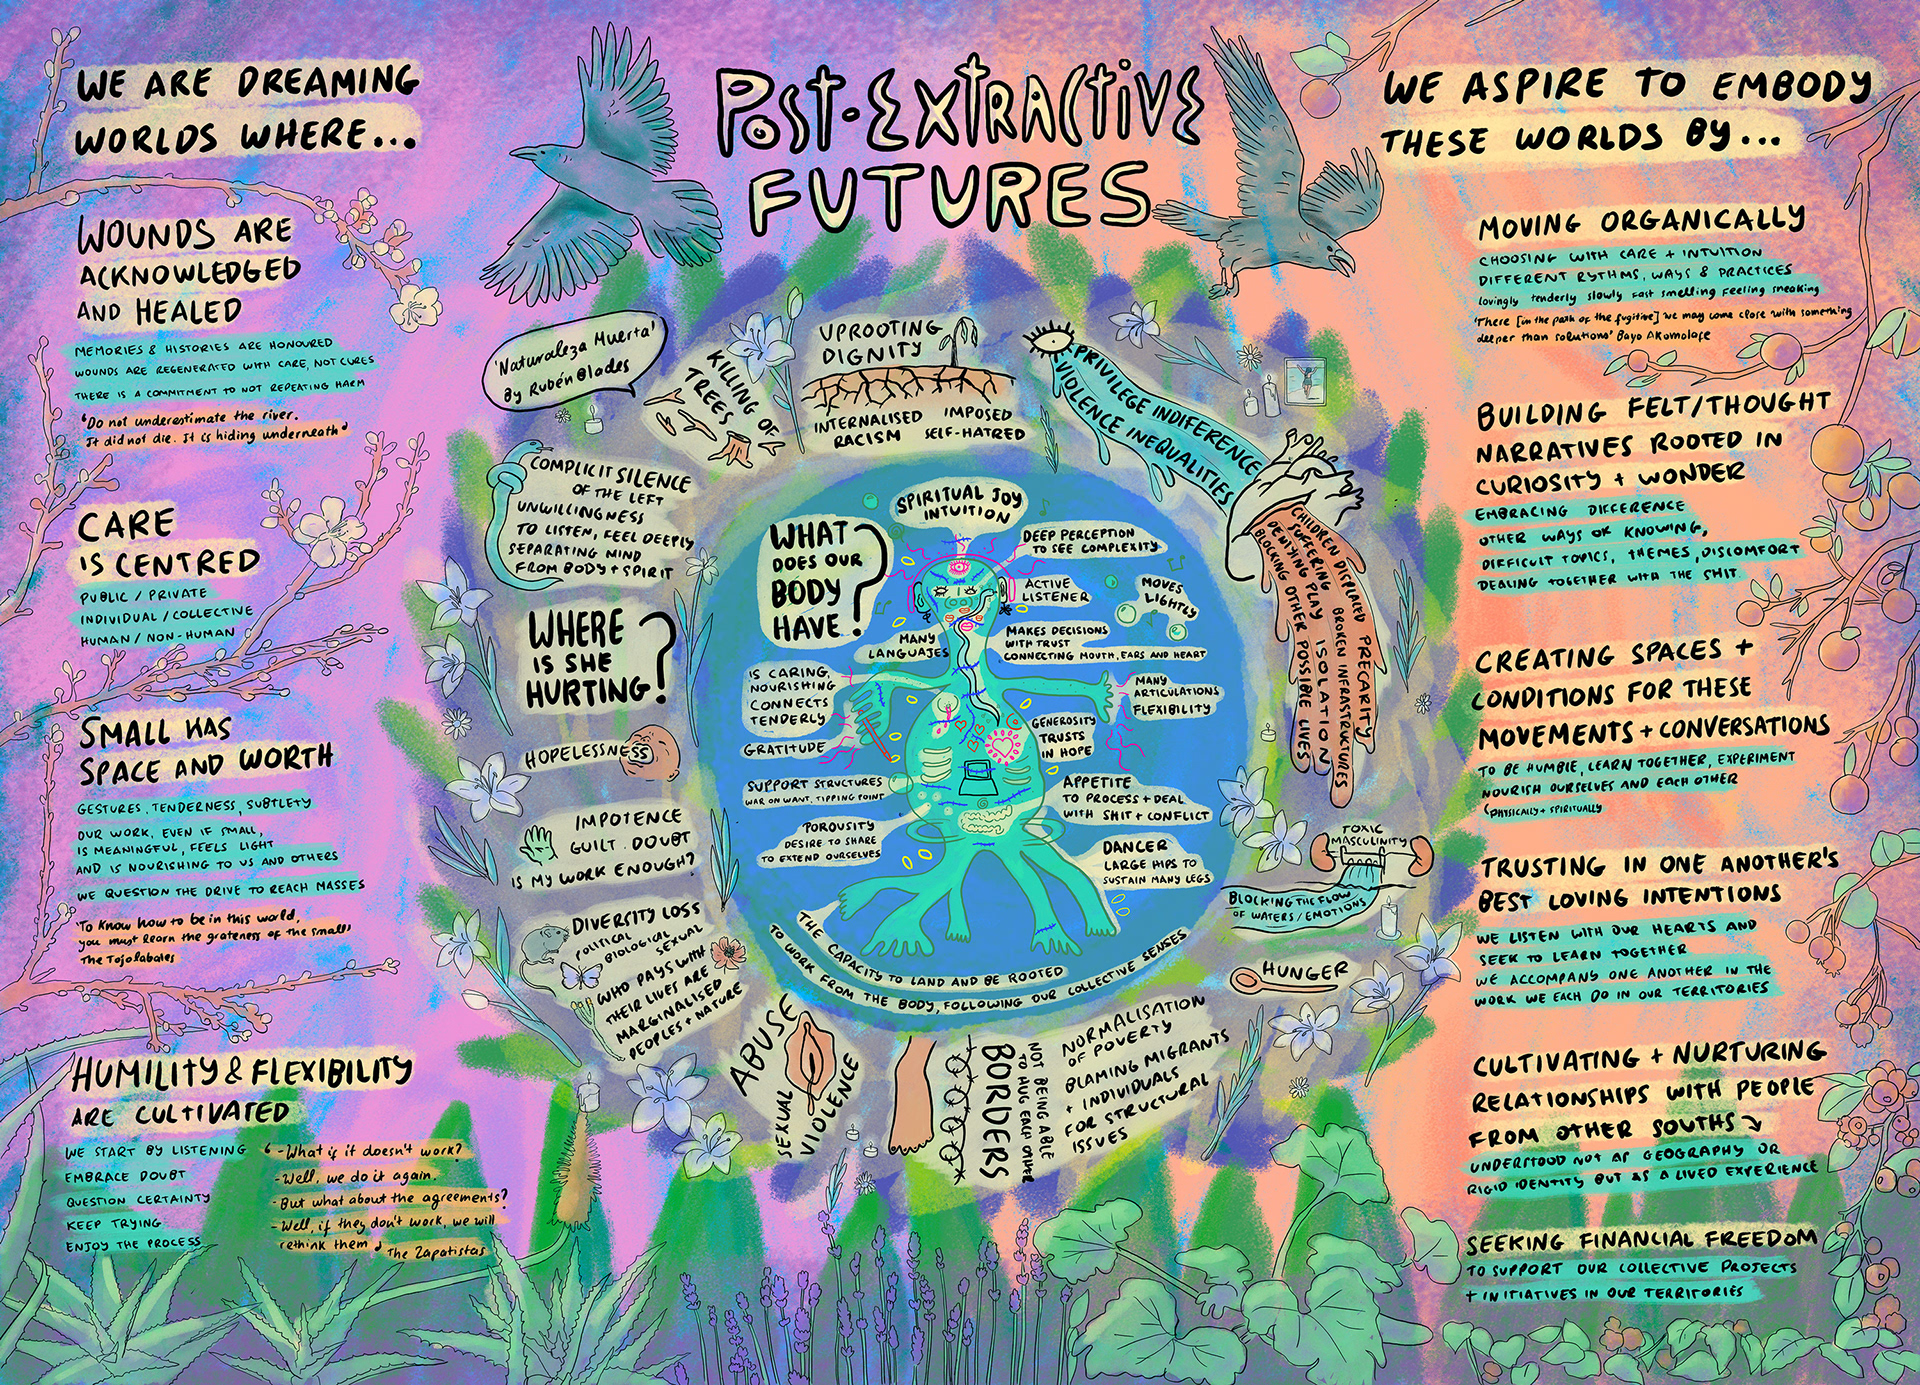 POST-EXTRACTIVE
FUTURES
WE ARE DREAMING
WORLDS WHERE...
WOUNDS ARE
ACKNOWLEDGED
AND HEALED
MEMORIES & HISTORIES ARE HONOURED
WOUNDS ARE REGENERATED WITH CARE, NOT CURES
THERE IS A COMMITMENT TO NOT REPEATING HARM
'Do not underestimate the river.
It did not die. It is hiding underneath'
CARE
IS CENTRED
PUBLIC / PRIVATE
INDIVIDUAL / COLLECTIVE
HUMAN / NON-HUMAN
SMALL HAS
SPACE AND WORTH
GESTURES, TENDERNESS, SUBTLETY
OUR WORK, EVEN IF SMALL,
IS MEANINGFUL, FEELS LIGHT
AND IS NOURISHING TO US AND OTHERS
WE QUESTION THE DRIVE TO REACH MASSES
'To know how to be in this world,
you must learn the grateness of the small'
The Tojolabales
HUMILITY & FLEXIBILITY
ARE CULTIVATED
WE START BY LISTENING
EMBRACE DOUBT
QUESTION CERTAINTY
KEEP TRYING
ENJOY THE PROCESS
'-What if it doesn't work?
-Well, we do it again.
-But what about the agreements?
-Well, if they don't work, we will
rethink them' The Zapatistas
'Naturaleza Muerta'
By Rubén Blades
KILLING OF
TREES
UPROOTING
DIGNITY
INTERNALISED
RACISM
IMPOSED
SELF-HATRED
PRIVILEGE INDIFERENCE
VIOLENCE INEQUALITIES
CHILDREN DISPLACED PRECARITY
SUFFERING BROKEN INFRASTRUCTURES
DENYING PLAY ISOLATION
BLOCKING OTHER POSSIBLE LIVES
TOXIC
MASCULINITY
BLOCKING THE FLOW
OF WATERS/EMOTIONS
HUNGER
NORMALISATION
OF POVERTY
BLAMING MIGRANTS
+ INDIVIDUALS
FOR STRUCTURAL
ISSUES
BORDERS
NOT BEING ABLE
TO HUG EACH OTHER
ABUSE
SEXUAL
VIOLENCE
DIVERSITY LOSS
POLITICAL
BIOLOGICAL
SEXUAL
WHO PAYS WITH
THEIR LIVES ARE
MARGINALISED
PEOPLES + NATURE
IMPOTENCE
GUILT. DOUBT
IS MY WORK ENOUGH?
HOPELESSNESS
WHERE
IS SHE
HURTING?
COMPLICIT SILENCE
OF THE LEFT
UNWILLINGNESS
TO LISTEN, FEEL DEEPLY
SEPARATING MIND
FROM BODY + SPIRIT
WHAT
DOES OUR
BODY
HAVE?
SPIRITUAL JOY
INTUITION
DEEP PERCEPTION
TO SEE COMPLEXITY
ACTIVE
LISTENER
MOVES
LIGHTLY
MANY
LANGUAJES
MAKES DECISIONS
WITH TRUST
CONNECTING MOUTH, EARS AND HEART
IS CARING,
NOURISHING
CONNECTS
TENDERLY
GRATITUDE
MANY
ARTICULATIONS
FLEXIBILITY
GENEROSITY
TRUSTS
IN HOPE
SUPPORT STRUCTURES
WAR ON WANT, TIPPING POINT
APPETITE
TO PROCESS + DEAL
WITH SHIT + CONFLICT
POROUSITY
DESIRE TO SHARE
TO EXTEND OURSELVES
DANCER
LARGE HIPS TO
SUSTAIN MANY LEGS
THE CAPACITY TO LAND AND BE ROOTED
TO WORK FROM THE BODY, FOLLOWING OUR COLLECTIVE SENSES
WE ASPIRE TO EMBODY
THESE WORLDS BY...
MOVING ORGANICALLY
CHOOSING WITH CARE + INTUITION
DIFFERENT RYTHMS, WAYS & PRACTICES
lovingly tenderly slowly fast smelling feeling sneaking
'There [in the path of the fugitive] we may come close with something
deeper than solutions' Bayo Akomolafe
BUILDING FELT/THOUGHT
NARRATIVES ROOTED IN
CURIOSITY + WONDER
EMBRACING DIFFERENCE
OTHER WAYS OF KNOWING,
DIFFICULT TOPICS, THEMES, DISCOMFORT
DEALING TOGETHER WITH THE SHIT.
CREATING SPACES +
CONDITIONS FOR THESE
MOVEMENTS + CONVERSATIONS
TO BE HUMBLE, LEARN TOGETHER, EXPERIMENT
NOURISH OURSELVES AND EACH OTHER
PHYSICALLY + SPIRITUALLY
TRUSTING IN ONE ANOTHER'S
BEST LOVING INTENTIONS
WE LISTEN WITH OUR HEARTS AND
SEEK TO LEARN TOGETHER
WE ACCOMPANY ONE ANOTHER IN THE
WORK WE EACH DO IN OUR TERRITORIES
CULTIVATING + NURTURING
RELATIONSHIPS WITH PEOPLE
FROM OTHER SOUTHS
UNDERSTOOD NOT AS GEOGRAPHY OR
RIGID IDENTITY BUT AS A LIVED EXPERIENCE
SEEKING FINANCIAL FREEDOM
TO SUPPORT OUR COLLECTIVE PROJECTS
+ INITIATIVES IN OUR TERRITORIES